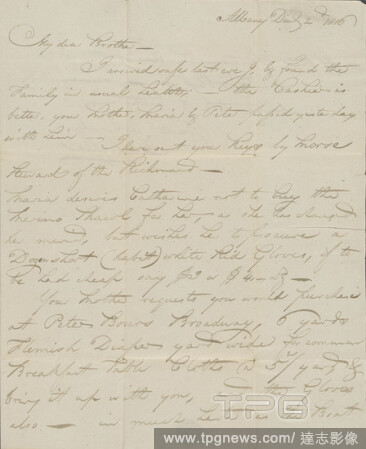 Albany Dec 2nd 1816
My dear Brother —
I arrived safe last eve'g & found the
Family in usual health — the Cashier is
better, your Mother, Maria & Peter passed yesterday
with him —
I have sent you keys by Morse
Steward of the Richmond —
Maria desires Catharine not to buy the
Merino Shawl for her, as she has changed
her mind, but wishes her to procure a
(habit) white Kid Gloves, if to
be had cheap say
Your Mother requests you would purchase
at Peter Bours Broadway, 6 yards
Flemish Diaper yard wide for common
Breakfast Table Cloths @ 5/ yard &
bring it up with you, and the Gloves
also — in much as the Boat
TPG
www.tpgnews.com / 達志影像